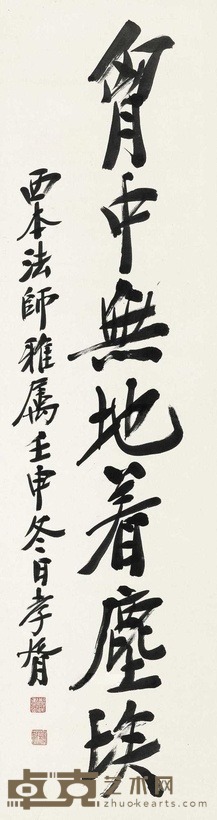 胷中無地着塵埃
西本法師雅属壬申冬日孝胥
卓克艺术网
zhuokearts.com